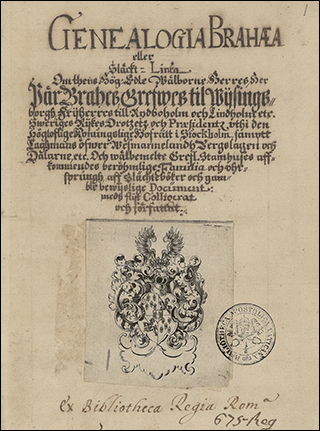 1
GENEALOGIA BRAHÆA
eller
Släckt - Linea
Om theis Hög Edle Wälborne Herres Her
Pär Brahes Grefwes til Wÿsings-
borgh Frijherres til Rydboholm och Lindholm etc.
Sweriges Rijkes Drotzetz och Præsidentz uthi den
Höglofliga Konungzliga Hofrätt i Stockholm, sampt
Laghmans öfwer Wesmannelandh Bergslagen och
Dälarne, etc. Och wälbemelte Grefl. Stamhuses aff-
kommendes berömlige Familia och uhr-
sprungh aff Slächteböker och gam-
ble bewijslige Document:
medh flijt Colligerat
och författat.
BIBLIOTHECA APOSTOLICA VATICANA
ex Bibliotheca Regia Romª
675-Rog